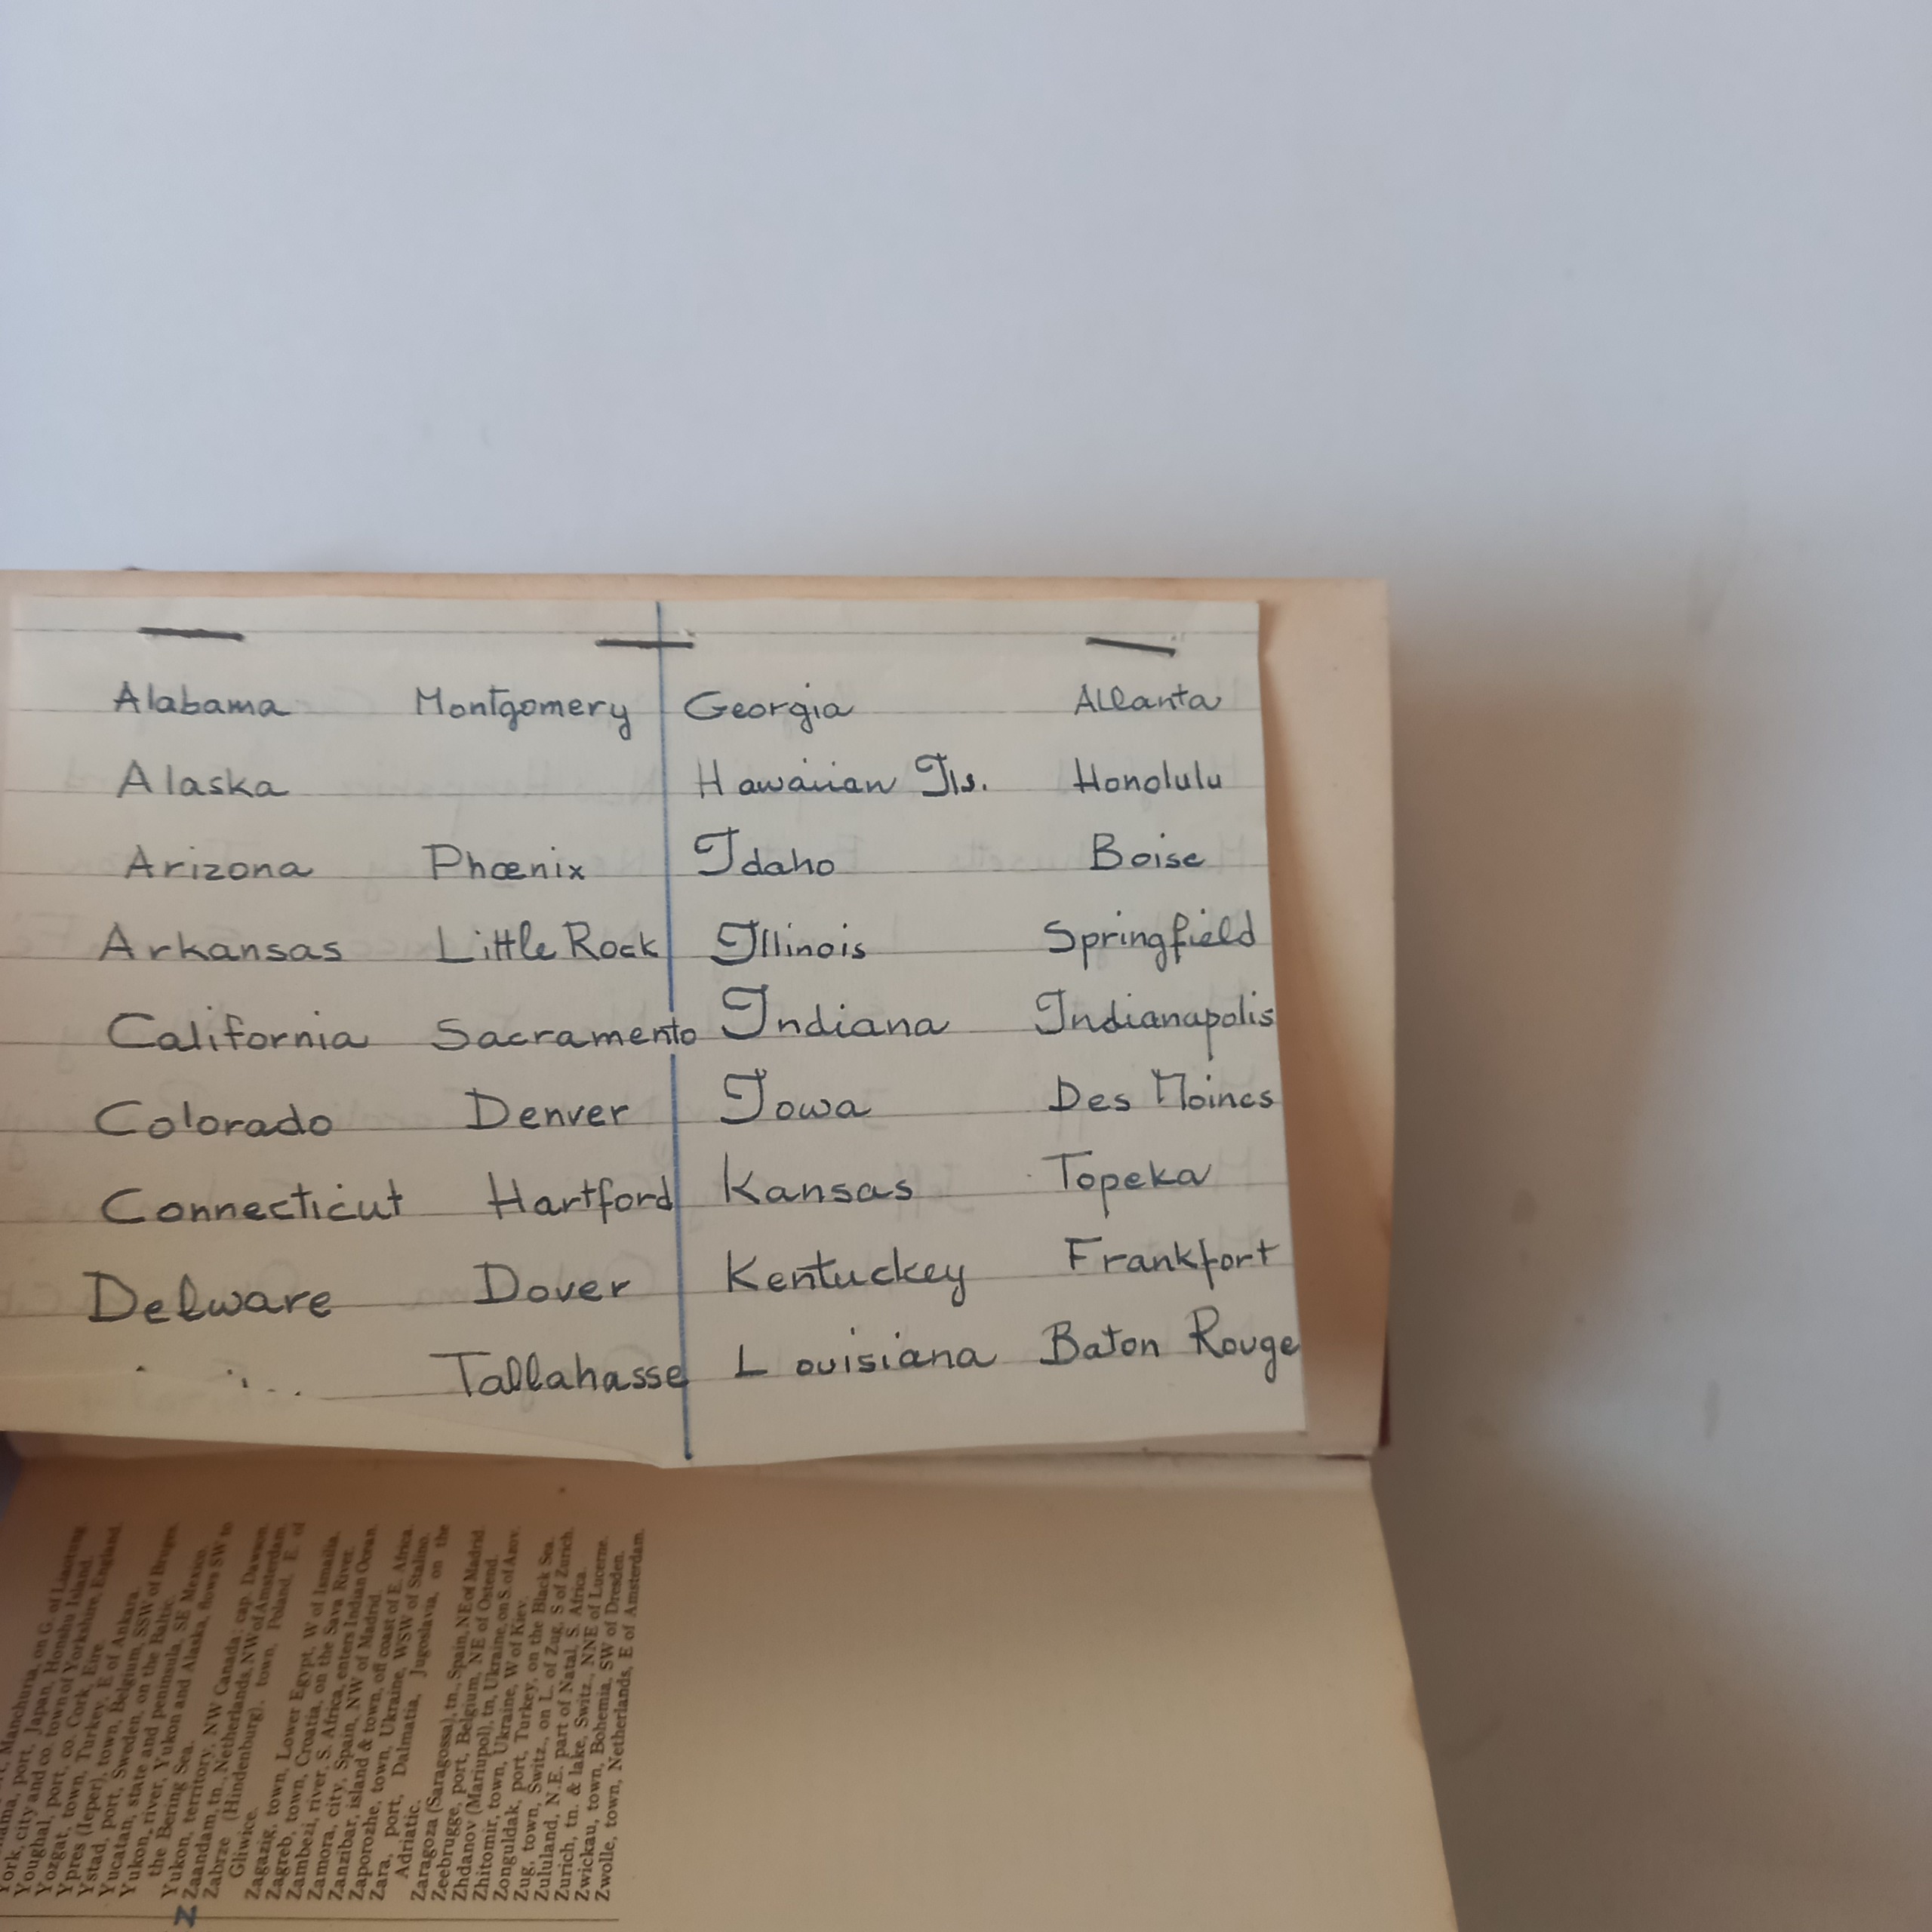 Alabama Montgomery Georgia Atlanta
Alaska Hawaiian Is. Honolulu
Arizona Phœnix Idaho Boise
Arkansas Little Rock Illinois Springfield
California Sacramento Indiana Indianapolis
Colorado Denver Iowa Des Moines
Connecticut Hartford Kansas Topeka
Delware Dover Kentucky Frankfort
Tallahasse Louisiana Baton Rouge
Manchuria, on G. of Liaotung.
port, Japan, Honshu Island.
York, city and co. town of Yorkshire, England.
Youghal, port, co. Cork, Eire.
Yozgat, town, Turkey, E. of Ankara.
Ypres (Ieper), town, Belgium, SSW of Bruges.
Ystad, port, Sweden, on the Baltic.
Yucatan, state and peninsula, SE Mexico.
Yukon, river, Yukon and Alaska, flows SW to
the Bering Sea.
Yukon, territory, NW Canada; cap. Dawson.
Z
Zaandam, tn., Netherlands, NW of Amsterdam.
Zabrze (Hindenburg), town, Poland, E. of
Gliwice.
Zagazig, town, Lower Egypt, W of Ismailia.
Zagreb, town, Croatia, on the Sava River.
Zambezi, river, S. Africa, enters Indian Ocean.
Zamora, city, Spain, NW of Madrid.
Zanzibar, island & town, off coast of E. Africa.
Zaporozhe, town, Ukraine, WSW of Stalino.
Zara, port, Dalmatia, Jugoslavia, on the
Adriatic.
Zaragoza (Saragossa), tn., Spain, NE of Madrid.
Zeebrugge, port, Belgium, NE of Ostend.
Zhdanov (Mariupol), tn, Ukraine, on S. of Azov.
Zhitomir, town, Ukraine, W of Kiev.
Zonguldak, port, Turkey, on the Black Sea.
Zug, town, Switz., on L. of Zug, S of Zurich.
Zululand, N.E. part of Natal, S. Africa.
Zurich, tn. & lake, Switz., NNE of Lucerne.
Zwickau, town, Bohemia, SW of Dresden.
Zwolle, town, Netherlands, E of Amsterdam.